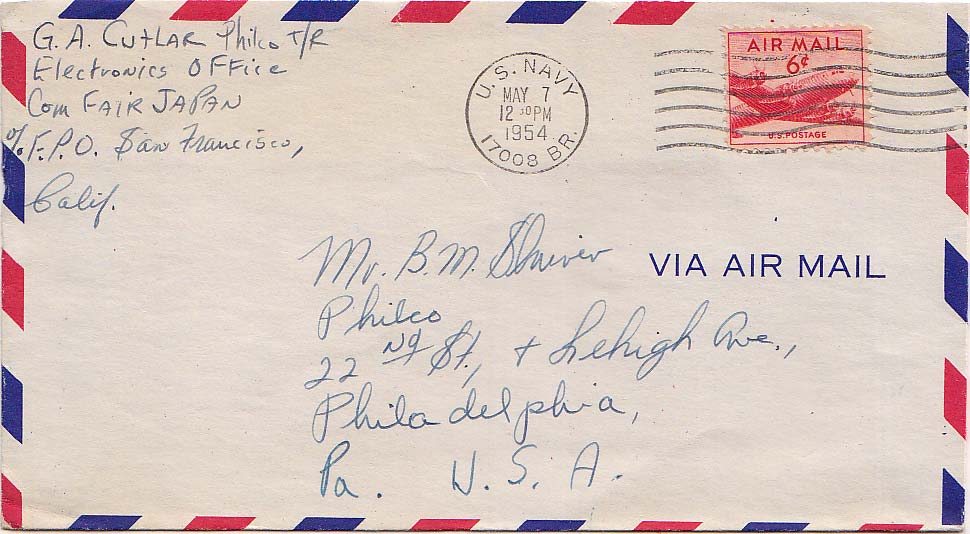 G. A. CUTLAR Philco T/R
Electronics OFFice
Com FAIR JAPAN
c/o F.P.O. San Francisco,
Calif.
U.S. NAVY
MAY 7
12 30 PM
1954
17008 BR.
AIR MAIL
6¢
U.S. POSTAGE
VIA AIR MAIL
Mr. B. M. Shriver
Philco
22 nd St., + Lehigh Ave.,
Philadelphia,
Pa. U. S. A.